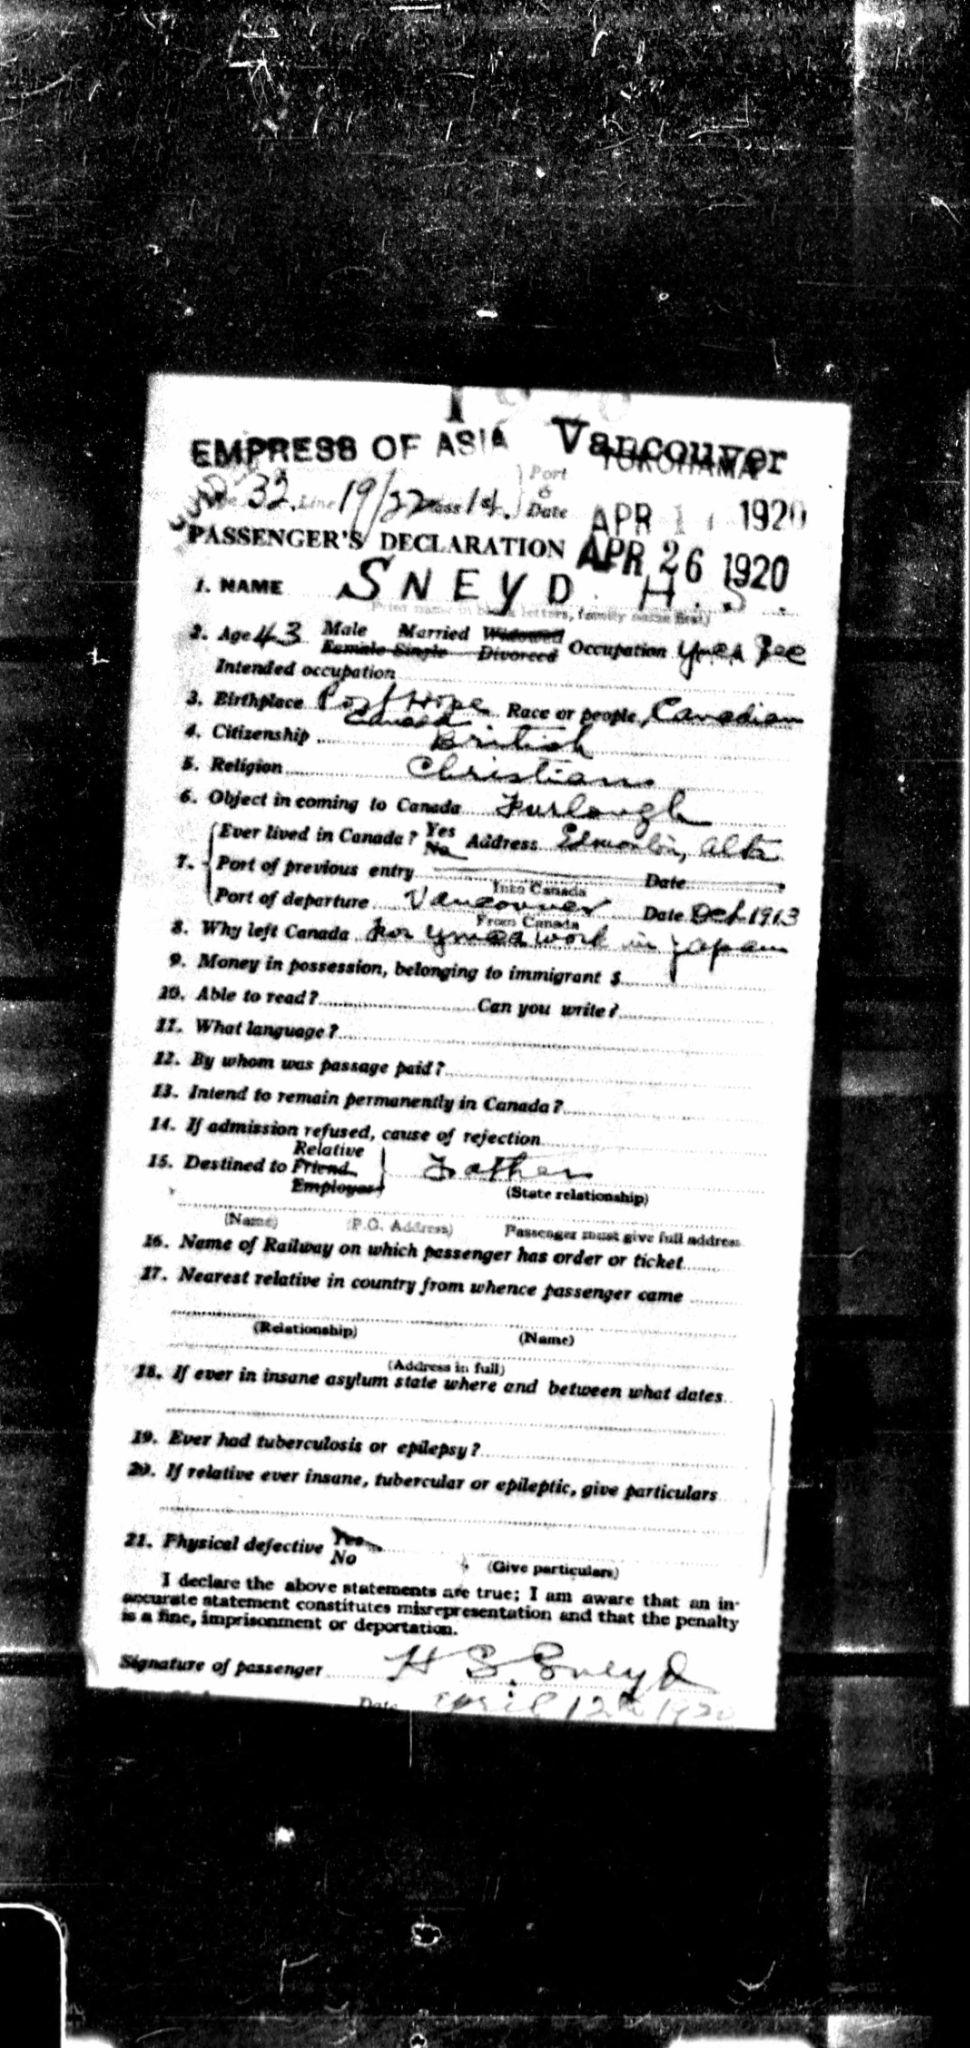 EMPRESS OF ASIA Vancouver
YOKOHAMA
Port
32. Line 19/22 Class 14. & Date APR 1 1920
PASSENGER'S DECLARATION APR 26 1920
1. NAME SNEYD. H. S.
(Print name in block letters, family name first)
2. Age 43 Male Married Widowed Occupation Ymca Sec
Female Single Divorced
Intended occupation
3. Birthplace Port Hope Race or people, Canadian
Canada
4. Citizenship British
5. Religion Christian
6. Object in coming to Canada Furlough
Ever lived in Canada? Yes No Address Edmonton, Alta
7. Port of previous entry Date
Into Canada
Port of departure Vancouver Date Oct 1913
From Canada
8. Why left Canada for ymca work in Japan
9. Money in possession, belonging to immigrant $
10. Able to read? Can you write?
11. What language?
12. By whom was passage paid?
13. Intend to remain permanently in Canada?
14. If admission refused, cause of rejection
Relative
15. Destined to Friend Father
Employer (State relationship)
(Name) (P.O. Address) Passenger must give full address
16. Name of Railway on which passenger has order or ticket
17. Nearest relative in country from whence passenger came
(Relationship) (Name)
(Address in full)
18. If ever in insane asylum state where and between what dates
19. Ever had tuberculosis or epilepsy?
20. If relative ever insane, tubercular or epileptic, give particulars
21. Physical defective Yes
No (Give particulars)
I declare the above statements are true; I am aware that an in-
accurate statement constitutes misrepresentation and that the penalty
is a fine, imprisonment or deportation.
Signature of passenger H S. Sneyd
Date April 12th 1920